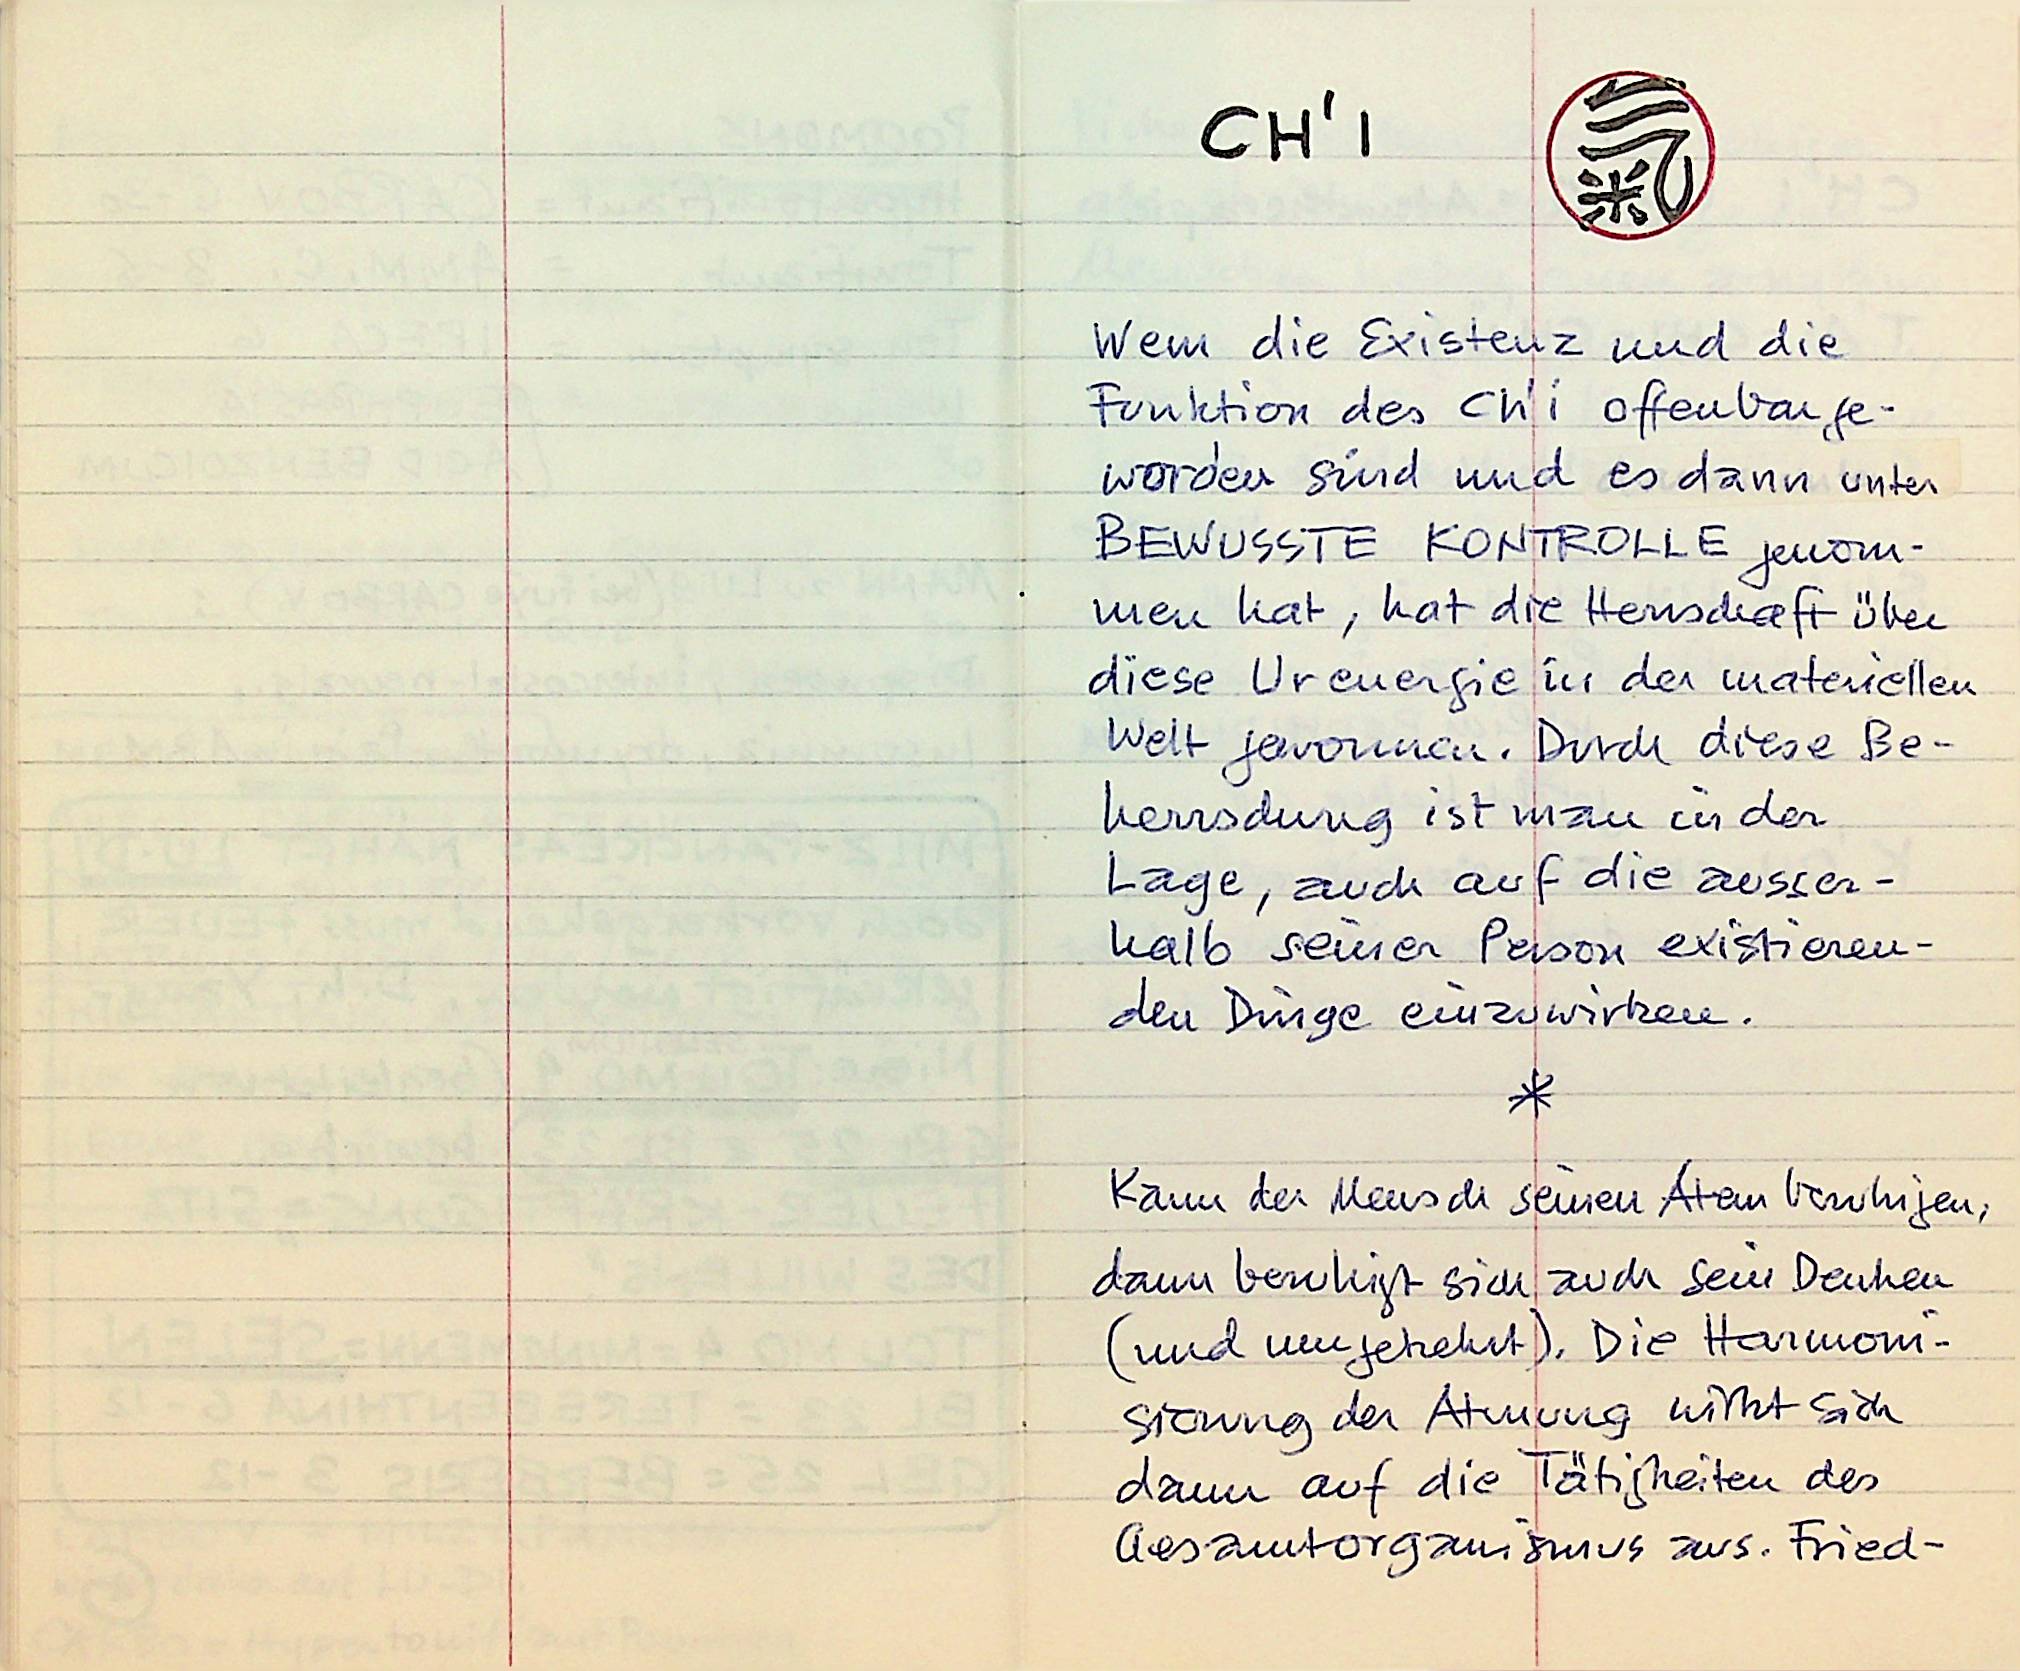 CH'I 氣
Wem die Existenz und die
Funktion des Ch'i offenbar ge-
worden sind und es dann unter
BEWUSSTE KONTROLLE genom-
men hat, hat die Herrschaft über
diese Urenergie in der materiellen
Welt gewonnen. Durch diese Be-
herrschung ist man in der
Lage, auch auf die ausser-
halb seiner Person existieren-
den Dinge einzuwirken.
*
Kann der Mensch seinen Atem beruhigen,
dann beruhigt sich auch sein Denken
(und umgekehrt). Die Harmoni-
sierung der Atmung wirkt sich
dann auf die Tätigkeiten des
Gesamtorganismus aus. Fried-